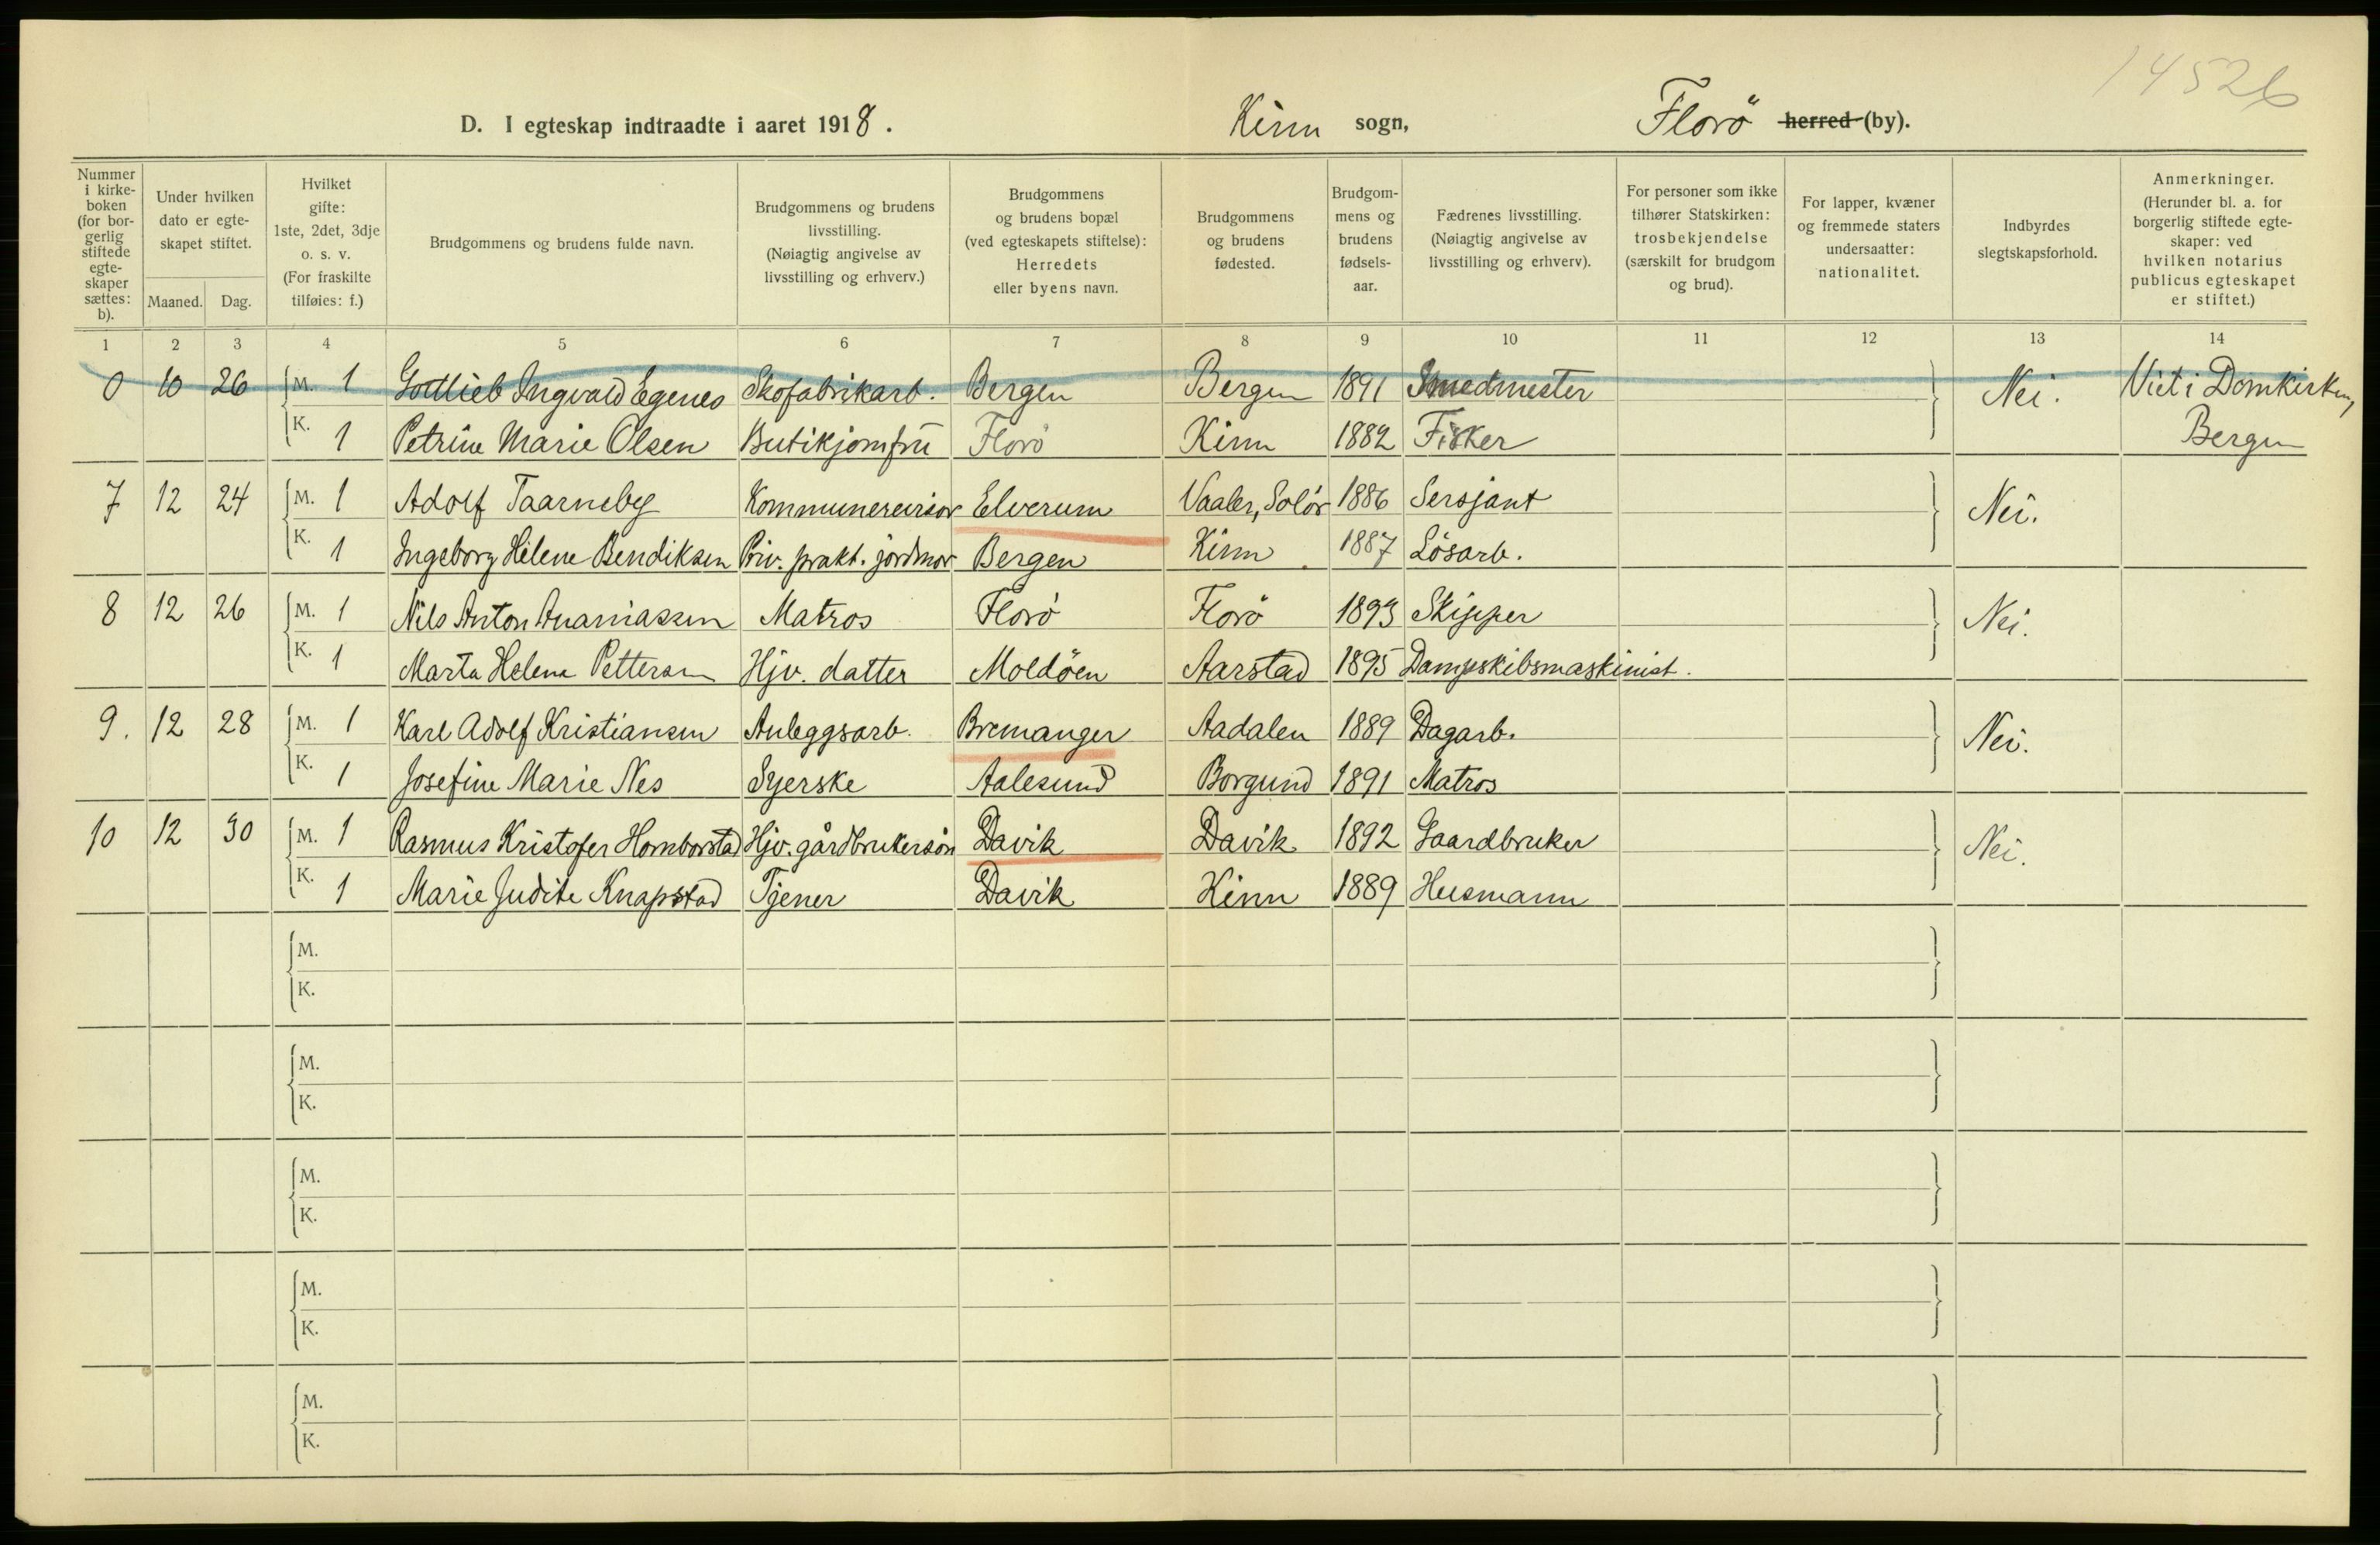 14526
D. I egteskap indtraadte i aaret 1918. Kinn sogn, Florö herred (by).
Nummer i kirkeboken (for borgerlig stiftede egteskaper sættes: b).
Under hvilken dato er egteskapet stiftet.
Maaned. Dag.
Hvilket gifte: 1ste, 2det, 3dje o. s. v. (For fraskilte tilføies: f.)
Brudgommens og brudens fulde navn.
Brudgommens og brudens livsstilling. (Nøiagtig angivelse av livsstilling og erhverv.)
Brudgommens og brudens bopæl (ved egteskapets stiftelse): Herredets eller byens navn.
Brudgommens og brudens fødested.
Brudgommens og brudens fødselsaar.
Fædrenes livsstilling. (Nøiagtig angivelse av livsstilling og erhverv).
For personer som ikke tilhører Statskirken: trosbekjendelse (særskilt for brudgom og brud).
For lapper, kvæner og fremmede staters undersaatter: nationalitet.
Indbyrdes slegtskapsforhold.
Anmerkninger. (Herunder bl. a. for borgerlig stiftede egteskaper: ved hvilken notarius publicus egteskapet er stiftet.)
1 2 3 4 5 6 7 8 9 10 11 12 13 14
0 10 26 M. 1 Gottlieb Ingvald Egenes Skofabrikarb. Bergen Bergen 1891 Smedmester Nei. Viet i Domkirken,
K. 1 Petrine Marie Olsen Butikjomfru Florö Kinn 1882 Fisker Bergen
7 12 24 M. 1 Adolf Taarneby Kommunerevisor Elverum Vaaler, Solör 1886 Sersjant Nei.
K. 1 Ingeborg Helene Bendiksen Priv. prakt. jordmor Bergen Kinn 1887 Lösarb.
8 12 26 M. 1 Nils Anton Ananiassen Matros Florö Florö 1893 Skipper Nei.
K. 1 Marta Helene Pettersen Hjv. datter Moldöen Aarstad 1895 Dampskibsmaskinist.
9. 12 28 M. 1 Karl Adolf Kristiansen Anleggsarb. Bremanger Aadalen 1889 Dagarb. Nei.
K. 1 Josefine Marie Nes Syerske Aalesund Borgund 1891 Matros
10 12 30 M. 1 Rasmus Kristofer Hornborstad Hjv. gårdbrukersön Davik Davik 1892 Gaardbruker Nei.
K. 1 Marie Judite Knapstad Tjener Davik Kinn 1889 Husmann
M.
K.
M.
K.
M.
K.
M.
K.
M.
K.